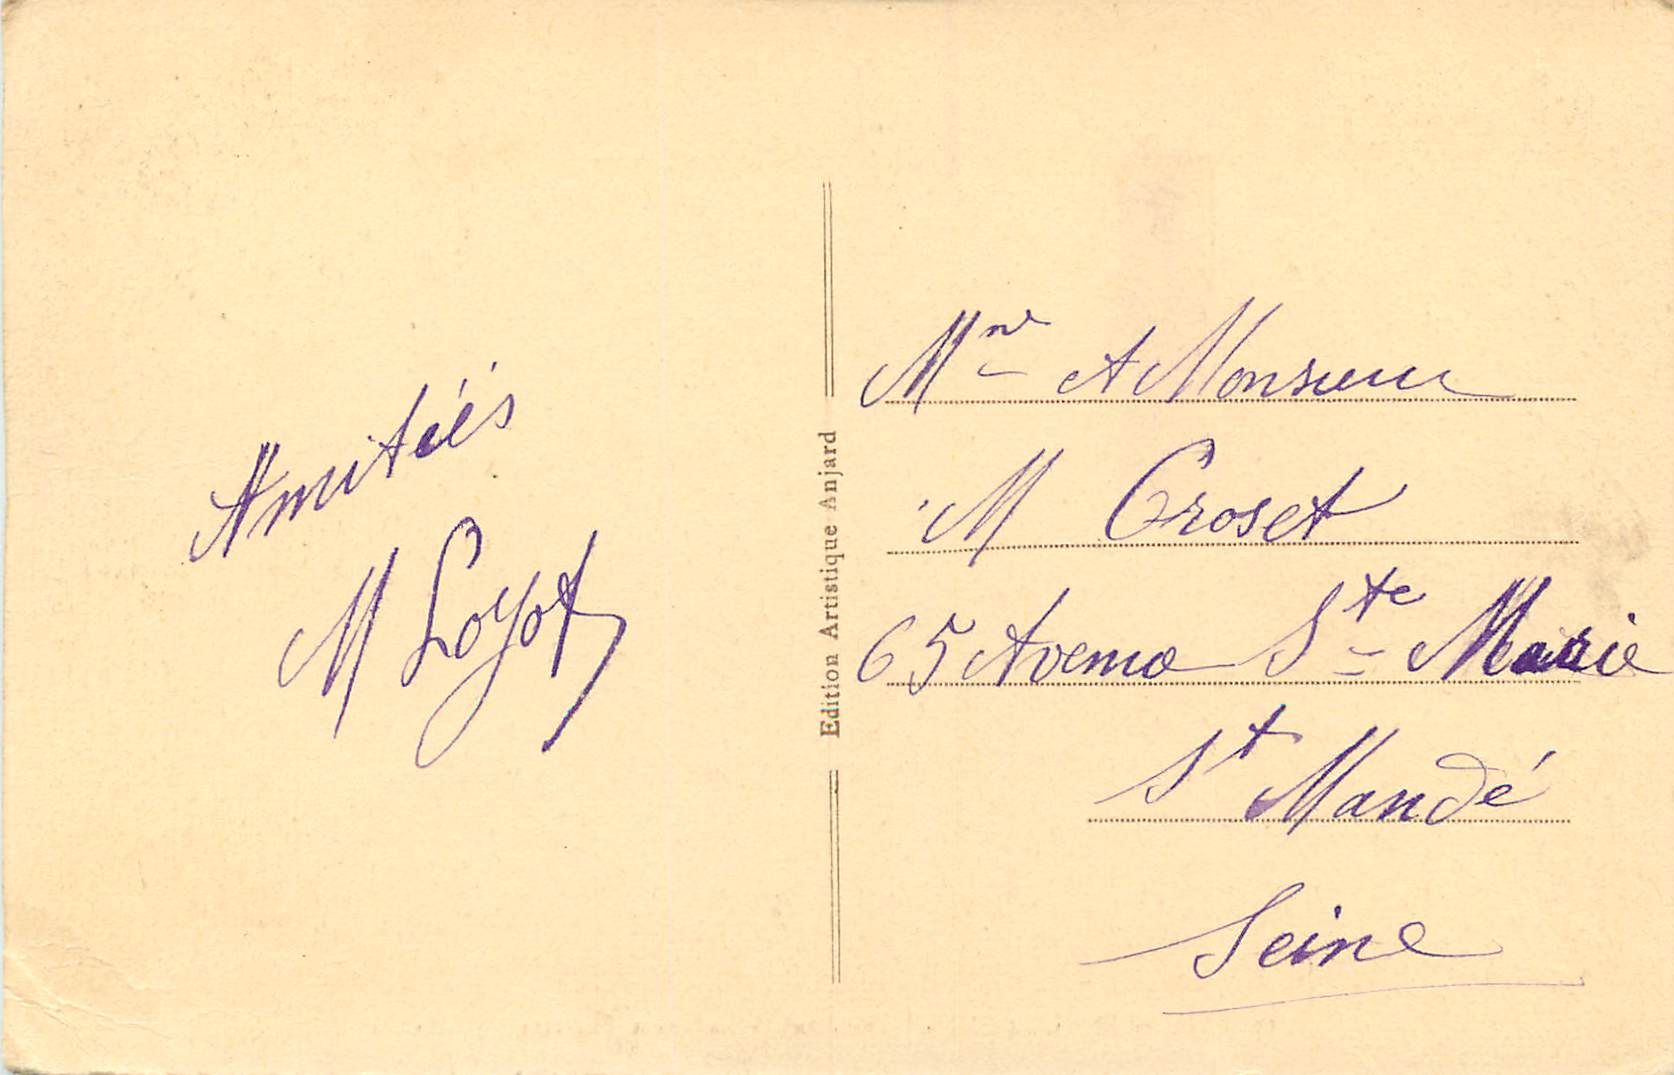 Amitiés
M Loyot
Edition Artistique Anjard
Mme et Monsieur
M Croset
65 Avenue Ste Marie
St Mandé
Seine